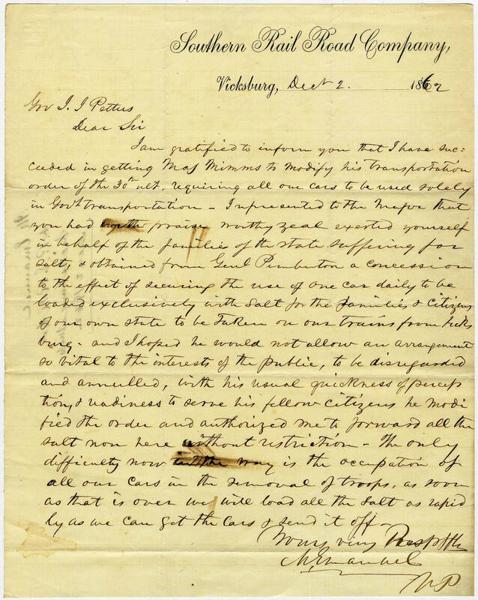 Southern Rail Road Company,
Vicksburg, Dec 2. 1862
Gov J. J Pettus
Dear Sir
I am gratified to inform you that I have suc=
ceeded in getting Maj Mimms to modify his transportation
order of the 30th ult, requiring all our cars to be used solely
in Govt transportation - I represented to the Major that
you had with praise worthy zeal exerted yourself
in behalf of the families of the state suffering for
salt, & obtained from Genl Pemberton a concession
to the effect of securing the use of one car daily to be
loaded exclusively with Salt for the families & Citizens
of our own state to be taken on our trains from Vicks
burg - and I hoped he would not allow an arrangement
so vital to the interests of the public, to be disregarded
and annulled, with his usual quickness of percep
tion, & readiness to serve his fellow Citizens he modi
fied the order and authorized me to forward all the
salt now here without restriction - the only
difficulty now in the way is the occupation of
all our cars in the removal of troops, as soon
as that is over we will load all the Salt as rapid
ly as we can get the Cars & send it off
Yours very Respftly
M Emanuel